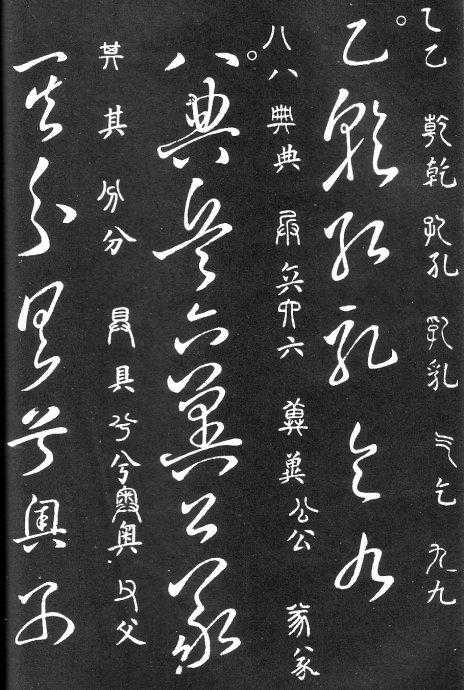 乙乙 乾乾 孔孔 乳乳 气乞 九九
乙乾孔乳乞九
八八 典典 兵兵 六六 冀冀 公公 㒸㒸
八典兵六冀公㒸
其其 分分 具具 兮兮 奧奧
其分具兮奧